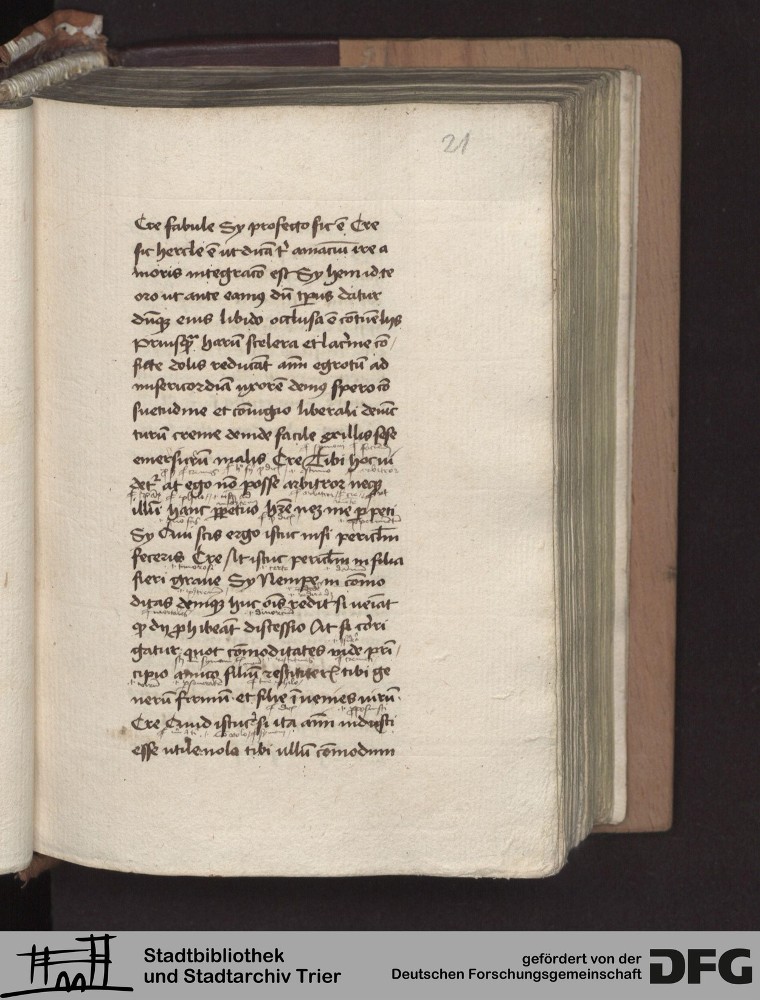 21
Cre fabule Sy profecto sic ē Cre
sic hercle ē ut dicāt͛ amāciū ire a
moris integracō est Sy hem id te
oro ut ante eamꝯ dū tp̄us datur
dūqꝫ eius libido occlusa ē cōtūeliis
priusqꝫ harū scelera et lacrime cō/
ficte dolis reducāt anm̄ egrotū ad
misericordiā uxorē demꝯ spero cō
suetudine et cōiugio liberali deuīc
turū creme deinde facile ex illis sese
emersurū malis Cre Tibi hoc ui
det͛ at ego nō posse arbitror neqꝫ
illū hanc ꝑpetuo hr̄e neqꝫ me ꝑpeti
Sy Qui scis ergo istuc nisi periclm̄
feceris Cre At istuc periclm̄ in filia
fieri graue Sy Nempe in cōmo
ditas deniqꝫ huc oīs redit si ueīat
qd dij ꝓhibeāt discessio At si cōri
gatur quot cōmoditates uide prī/
cipio amico filiū restititer͛ tibi ge
nerū firmū et filie īuenies uirū
Cre Quid istuc si ita anm̄ induxti
esse utile nolo tibi ullū cōmodum
Stadtbibliothek
und Stadtarchiv Trier
gefördert von der
Deutschen Forschungsgemeinschaft
DFG